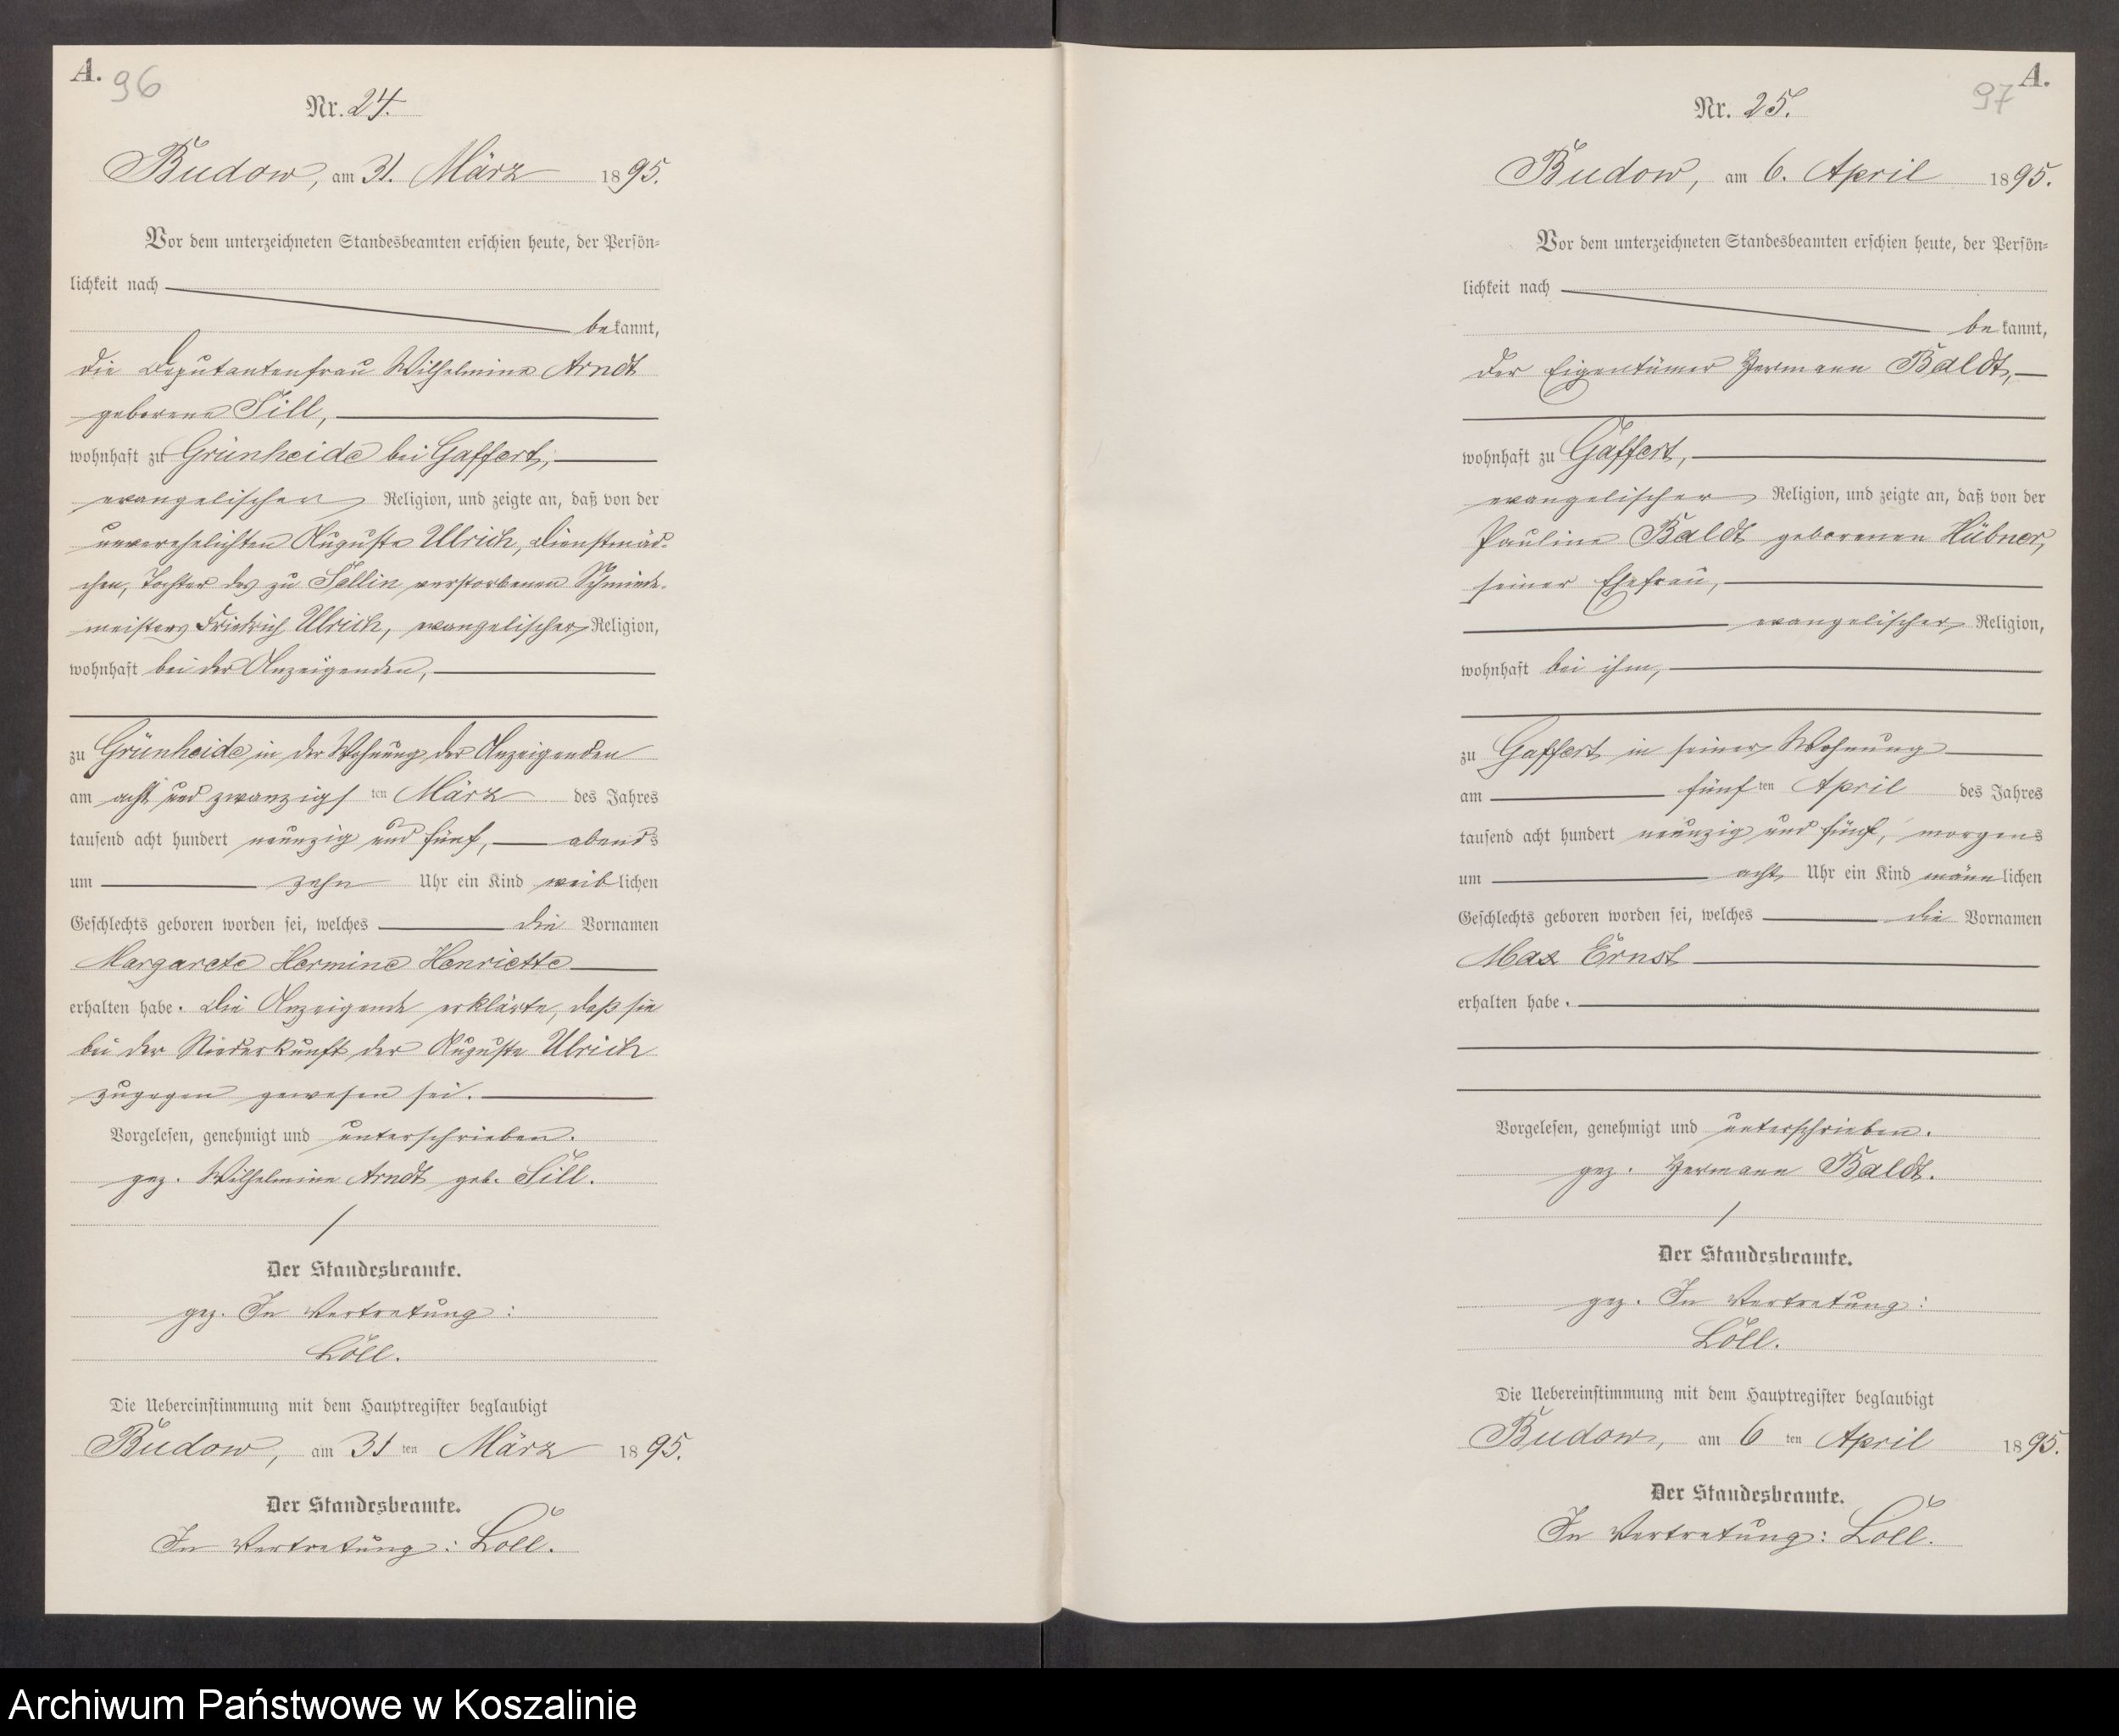 A. 96
Nr. 24.
Budow, am 31. März 1895.
Vor dem unterzeichneten Standesbeamten erschien heute, der Persön-
lichkeit nach
bekannt,
die Deputantenfrau Wilhelmine Arndt
geborene Sill,
wohnhaft zu Grünheide bei Gaffert,
evangelischen Religion, und zeigte an, daß von der
unverehelichten Auguste Ulrich, Dienstmäd-
chen, Tochter des zu Sellin verstorbenen Schmiede-
meisters Friedrich Ulrich, evangelischer Religion,
wohnhaft bei der Anzeigenden,
zu Grünheide in der Wohnung der Anzeigenden
am acht und zwanzigsten März des Jahres
tausend acht hundert neunzig und fünf, abends
um zehn Uhr ein Kind weiblichen
Geschlechts geboren worden sei, welches die Vornamen
Margarete Hermine Henriette
erhalten habe. Die Anzeigende erklärte, daß sie
bei der Niederkunft der Auguste Ulrich
zugegen gewesen sei.
Vorgelesen, genehmigt und unterschrieben.
gez. Wilhelmine Arndt geb. Sill.
Der Standesbeamte.
gez. In Vertretung:
Löll.
Die Uebereinstimmung mit dem Hauptregister beglaubigt
Budow, am 31 ten März 1895.
Der Standesbeamte.
In Vertretung: Löll.
97 A.
Nr. 25.
Budow, am 6. April 1895.
Vor dem unterzeichneten Standesbeamten erschien heute, der Persön-
lichkeit nach
bekannt,
der Eigentümer Hermann Baldt,
wohnhaft zu Gaffert,
evangelischer Religion, und zeigte an, daß von der
Pauline Baldt geborenen Hübner,
seiner Ehefrau,
evangelischer Religion,
wohnhaft bei ihm,
zu Gaffert in seiner Wohnung
am fünften April des Jahres
tausend acht hundert neunzig und fünf, morgens
um acht Uhr ein Kind männlichen
Geschlechts geboren worden sei, welches die Vornamen
Max Ernst
erhalten habe.
Vorgelesen, genehmigt und unterschrieben.
gez. Hermann Baldt.
Der Standesbeamte.
gez. In Vertretung:
Löll.
Die Uebereinstimmung mit dem Hauptregister beglaubigt
Budow, am 6 ten April 1895.
Der Standesbeamte.
In Vertretung: Löll.
Archiwum Państwowe w Koszalinie